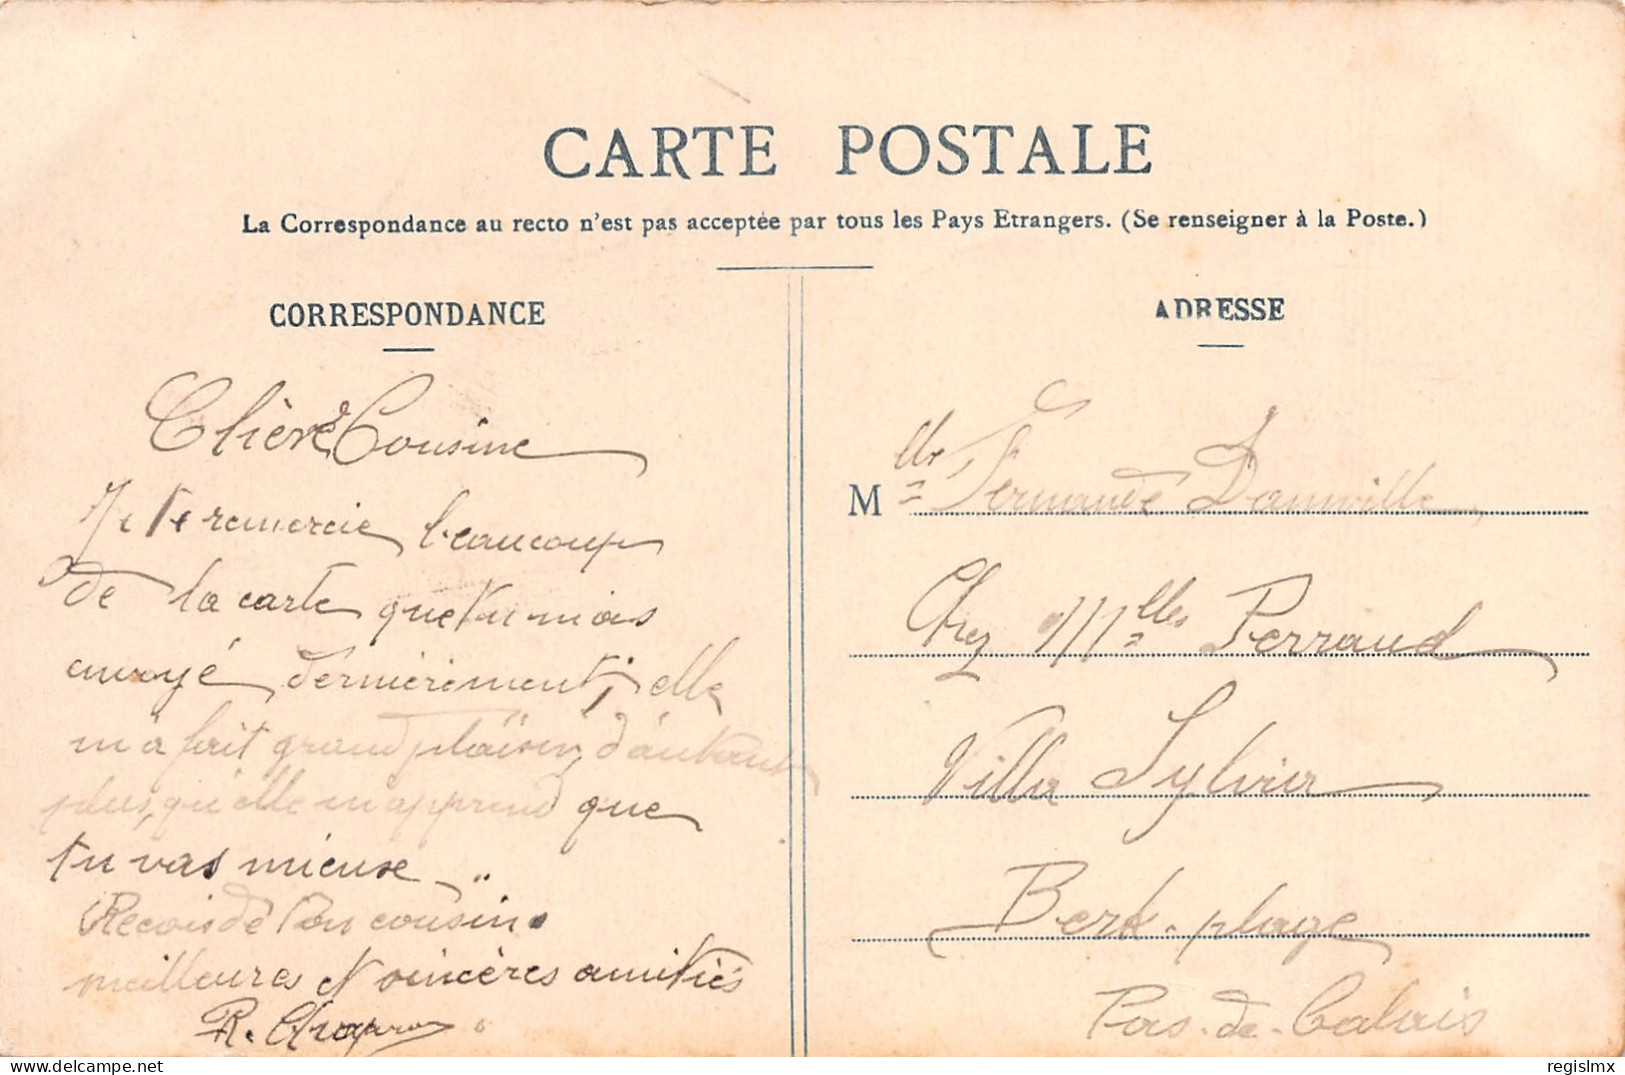 CARTE POSTALE
La Correspondance au recto n'est pas acceptée par tous les Pays Etrangers. (Se renseigner à la Poste.)
CORRESPONDANCE
Chère Cousine
Je te remercie beaucoup
de la carte que tu m'as
envoyé dernièrement, elle
m'a fait grand plaisir, d'autant
plus, qu'elle m'apprend que
tu vas mieux ..
Reçois de ton cousin
meilleures et sincères amitiés
R.
ADRESSE
Mlle Fernande Danville
Chez Mlles Perraud
Villa Sylvia
Berk-plage
Pas-de-Calais
regislmx